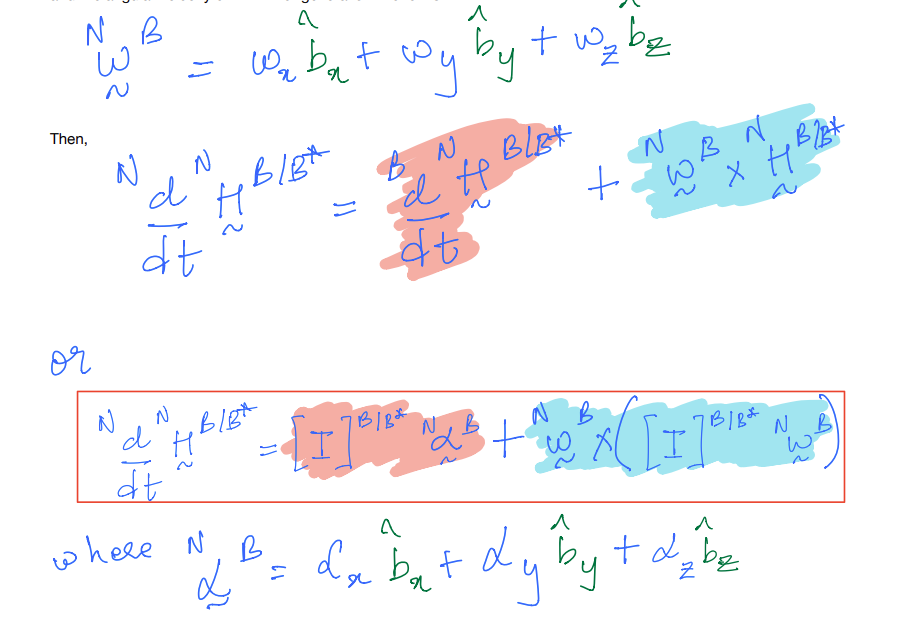 ᴺω̰ᴮ = ωₓ b̂ₓ + ω_y b̂_y + ω_z b̂_z
Then,
ᴺd/dt ᴺH̰^{B/B*} = ᴮd/dt ᴺH̰^{B/B*} + ᴺω̰ᴮ × ᴺH̰^{B/B*}
or
ᴺd/dt ᴺH̰^{B/B*} = [I]^{B/B*} ᴺα̰ᴮ + ᴺω̰ᴮ × ([I]^{B/B*} ᴺω̰ᴮ)
where ᴺα̰ᴮ = αₓ b̂ₓ + α_y b̂_y + α_z b̂_z